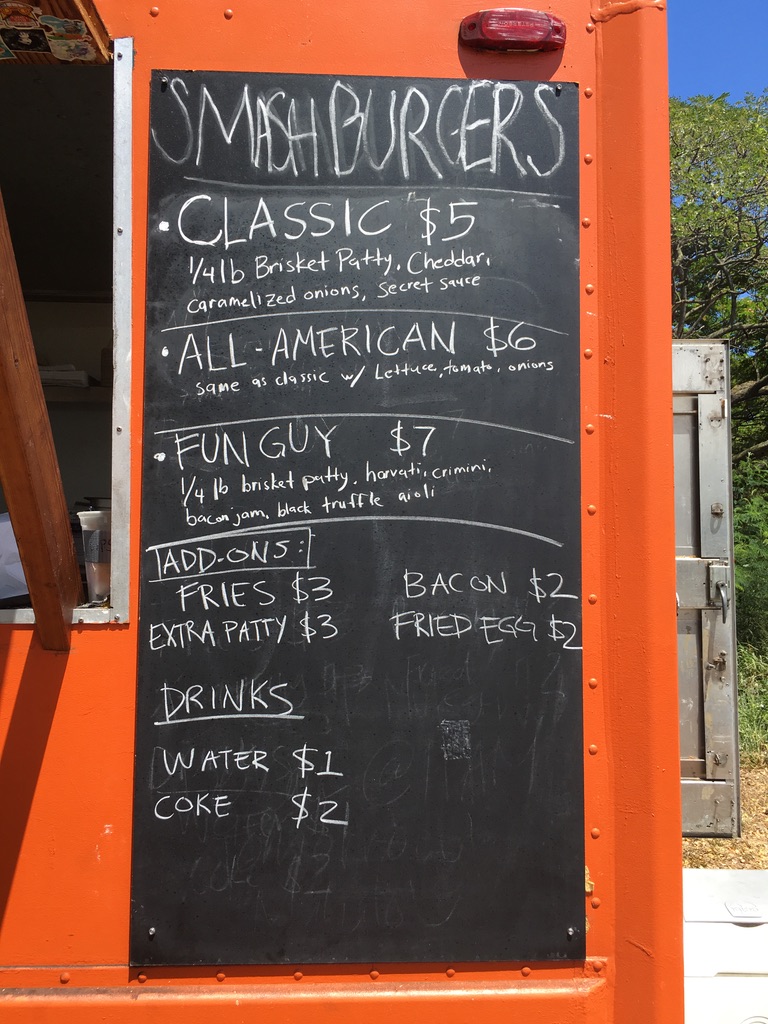 SMASH BURGERS
• CLASSIC $5
1/4 lb Brisket Patty, Cheddar,
caramelized onions, secret sauce
• ALL-AMERICAN $6
same as classic w/ Lettuce, tomato, onions
• FUN GUY $7
1/4 lb brisket patty, horvati, crimini,
bacon jam, black truffle aioli
ADD-ONS:
FRIES $3 BACON $2
EXTRA PATTY $3 FRIED EGG $2
DRINKS
WATER $1
COKE $2